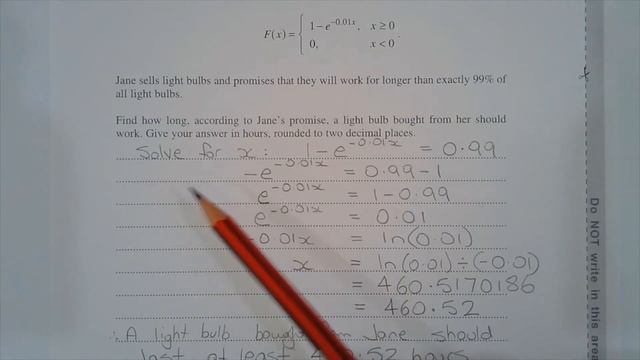 F(x) = { 1 − e^{−0.01x}, x ≥ 0
0, x < 0 .
Jane sells light bulbs and promises that they will work for longer than exactly 99% of
all light bulbs.
Find how long, according to Jane's promise, a light bulb bought from her should
work. Give your answer in hours, rounded to two decimal places.
Solve for x: 1 − e^{−0.01x} = 0.99
−e^{−0.01x} = 0.99 − 1
e^{−0.01x} = 1 − 0.99
e^{−0.01x} = 0.01
-0.01x = ln(0.01)
x = ln(0.01) ÷ (−0.01)
= 460.5170186
= 460.52
∴ A light bulb bought from Jane should
last at least 52 hours
Do NOT write in this area